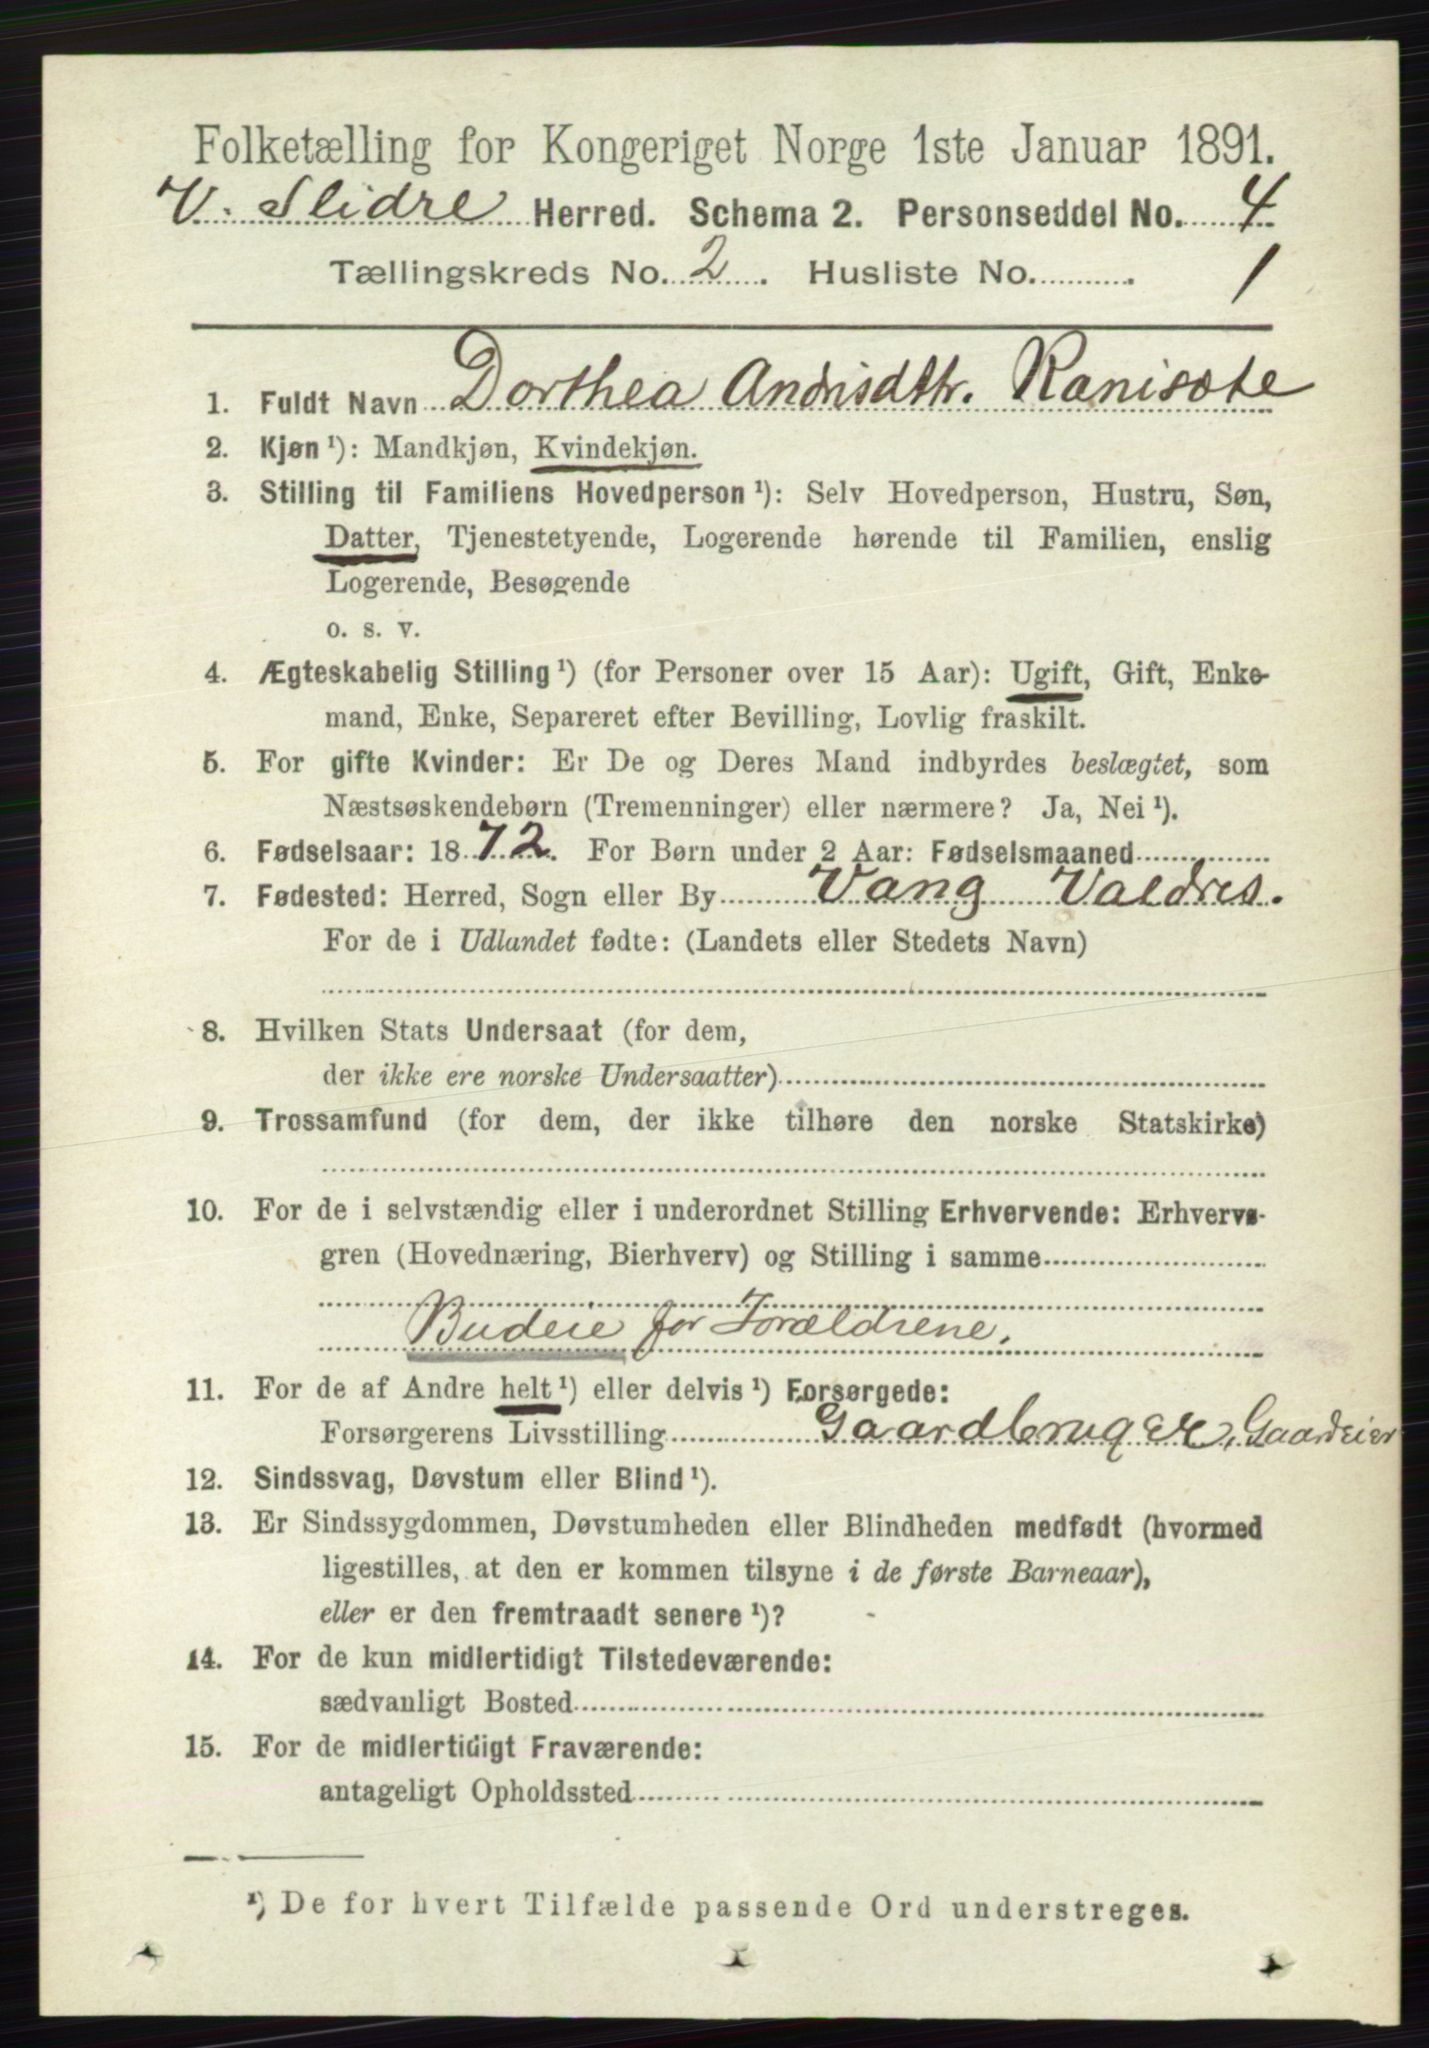 Folketælling for Kongeriget Norge 1ste Januar 1891.
V. Slidre Herred. Schema 2. Personseddel No. 4
Tællingskreds No. 2. Husliste No. 1
1. Fuldt Navn Dorthea Andrisdtr. Ranisote
2. Kjøn ¹): Mandkjøn, Kvindekjøn.
3. Stilling til Familiens Hovedperson ¹): Selv Hovedperson, Hustru, Søn,
Datter, Tjenestetyende, Logerende hørende til Familien, enslig
Logerende, Besøgende
o. s. v.
4. Ægteskabelig Stilling ¹) (for Personer over 15 Aar): Ugift, Gift, Enke-
mand, Enke, Separeret efter Bevilling, Lovlig fraskilt.
5. For gifte Kvinder: Er De og Deres Mand indbyrdes beslægtet, som
Næstsøskendebørn (Tremenninger) eller nærmere? Ja, Nei ¹).
6. Fødselsaar: 1872. For Børn under 2 Aar: Fødselsmaaned
7. Fødested: Herred, Sogn eller By Vang Valdres.
For de i Udlandet fødte: (Landets eller Stedets Navn)
8. Hvilken Stats Undersaat (for dem,
der ikke ere norske Undersaatter)
9. Trossamfund (for dem, der ikke tilhøre den norske Statskirke)
10. For de i selvstændig eller i underordnet Stilling Erhvervende: Erhvervs-
gren (Hovednæring, Bierhverv) og Stilling i samme
Budeie for Forældrene.
11. For de af Andre helt ¹) eller delvis ¹) Forsørgede:
Forsørgerens Livsstilling Gaardbruger, Gaardeier
12. Sindssvag, Døvstum eller Blind ¹).
13. Er Sindssygdommen, Døvstumheden eller Blindheden medfødt (hvormed
ligestilles, at den er kommen tilsyne i de første Barneaar),
eller er den fremtraadt senere ¹)?
14. For de kun midlertidigt Tilstedeværende:
sædvanligt Bosted
15. For de midlertidigt Fraværende:
antageligt Opholdssted
¹) De for hvert Tilfælde passende Ord understreges.